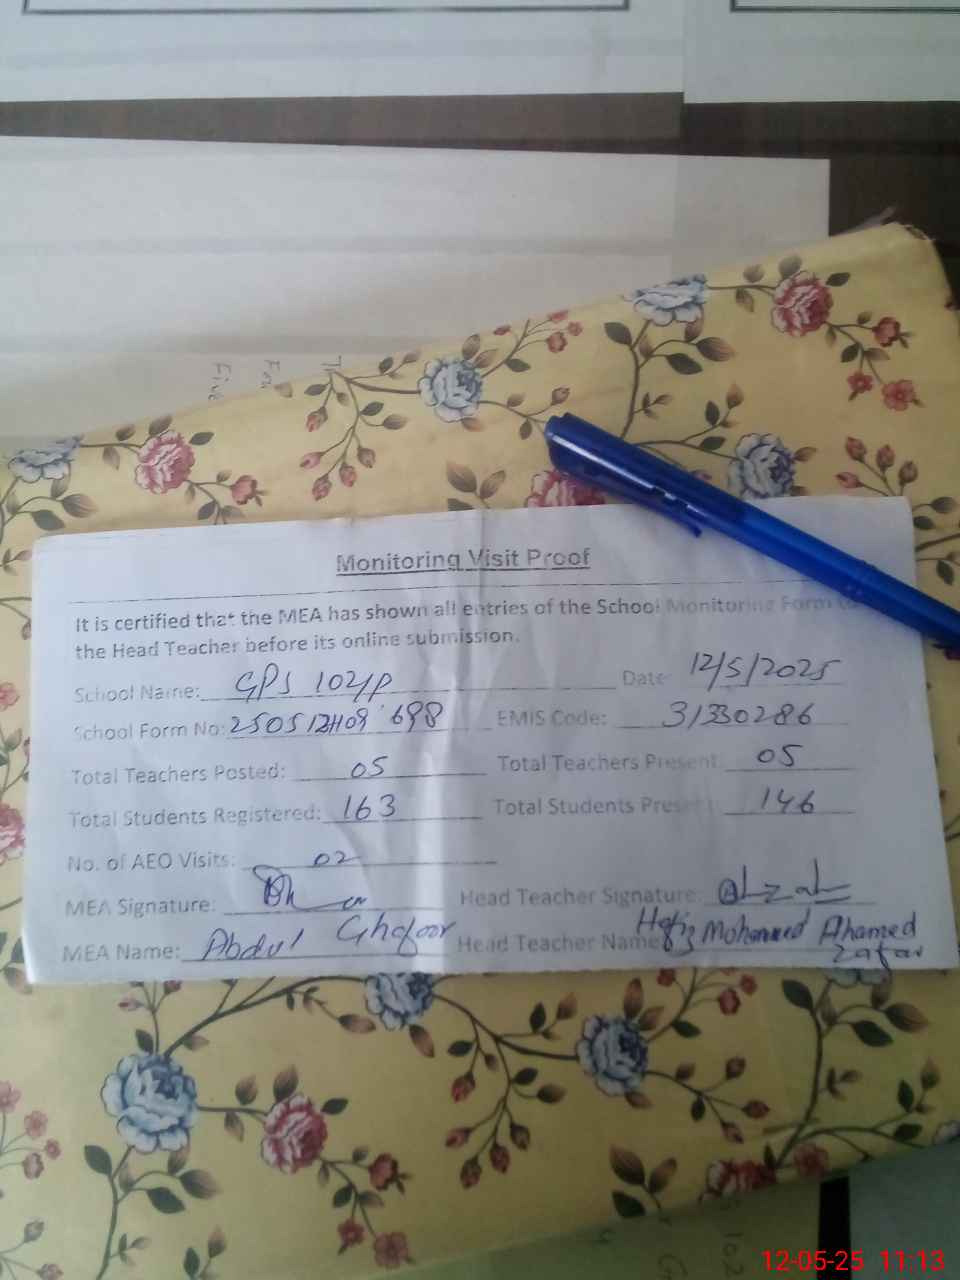 Five
For
Th
Monitoring Visit Proof
It is certified that the MEA has shown all entries of the School Monitoring Form to
the Head Teacher before its online submission.
School Name: GPS 102/P Date: 12/5/2025
School Form No: EMIS Code: 31330286
Total Teachers Posted: 05 Total Teachers Present: 05
Total Students Registered: 163 Total Students Present: 146
No. of AEO Visits: 02
MEA Signature: Head Teacher Signature:
MEA Name: Abdul Ghafoor Head Teacher Name: Hafiz Mohammed Ahamed
Zafar
12-05-25 11:13